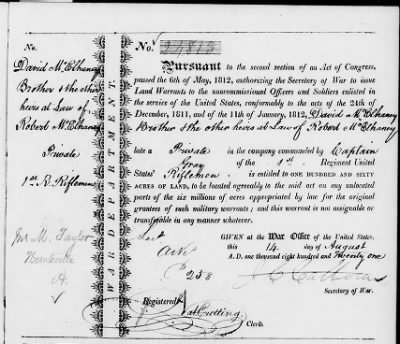 No.
David McElhaney
Brother & the other
heirs at Law of
Robert McElhaney
Private
1st R. Riflemen
Taylor
Huntsville
A.
WAR DEPARTMENT.
No. 24812
Pursuant to the second section of an Act of Congress,
passed the 6th of May, 1812, authorizing the Secretary of War to issue
Land Warrants to the noncommissioned Officers and Soldiers enlisted
in the service of the United States, conformably to the acts of the 24th of
December, 1811, and of the 11th of January, 1812, David McElhaney
Brother & the other heirs at Law of Robert McElhaney
late a Private in the company commanded by Captain
Gray of the 1st. Regiment United
States' Riflemen is entitled to ONE HUNDRED AND SIXTY
ACRES OF LAND, to be located agreeably to the said act on any unlocated
parts of the six millions of acres appropriated by law for the original
grantees of such military warrants; and this warrant is not assignable or
transferable in any manner whatever.
GIVEN at the War Office of the United States.
this 14 day of August
A. D. one thousand eight hundred and twenty one
258
J C Calhoun
Secretary of War.
Registered
Clerk.